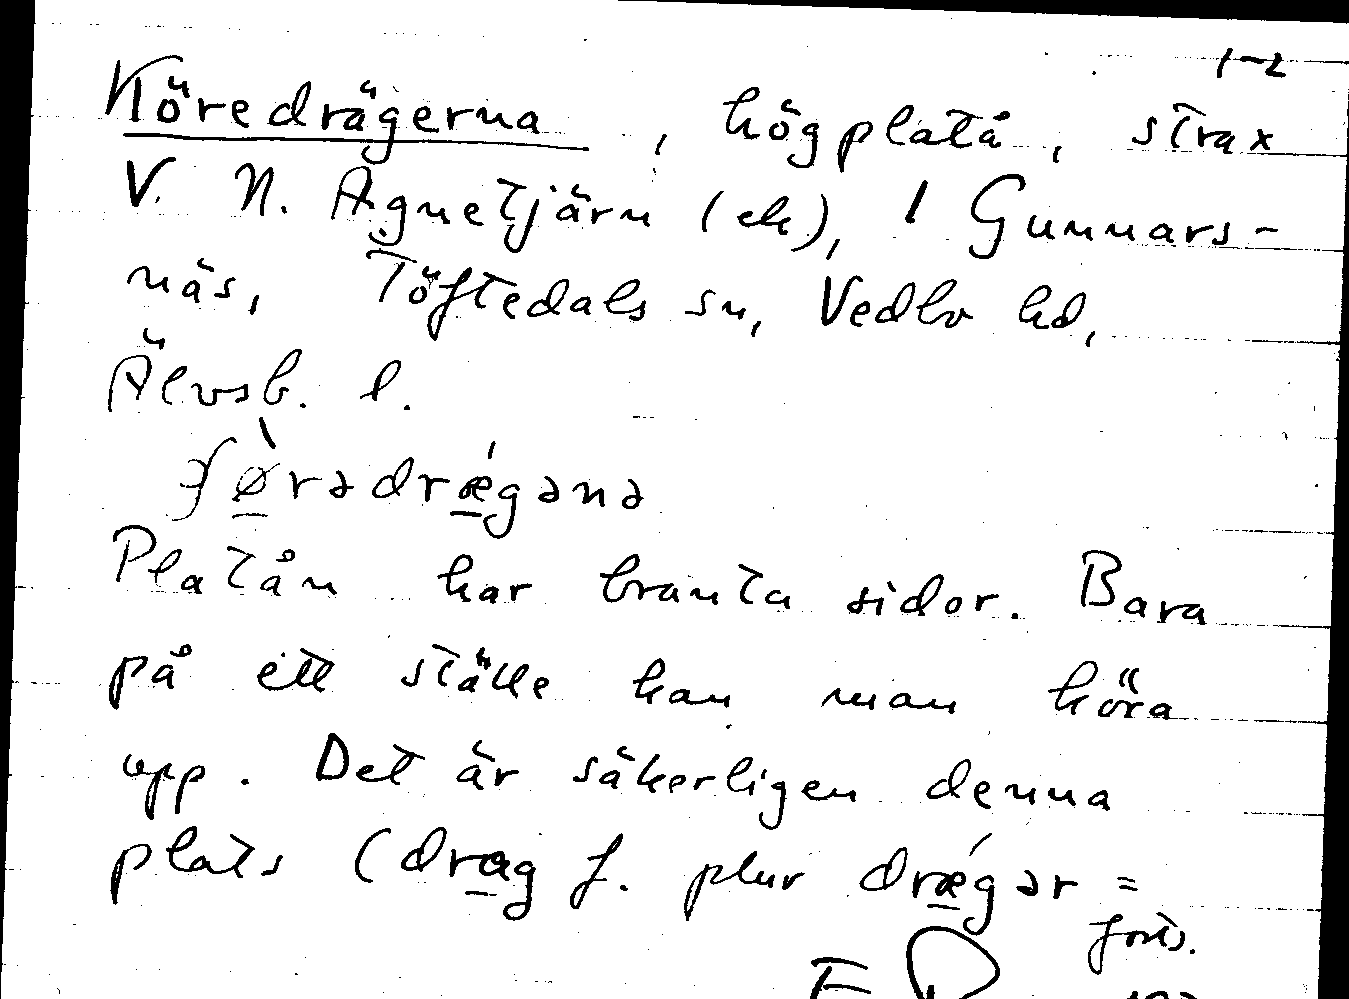 1-2
Köredrägerna, högplatå, strax
V. N. Ågnetjärn (ek), 1 Gunnars-
näs, Töftedals sn, Vedbo hd,
Älvsb. l.
Plätån har branta sidor. Bara
på ett ställe kan man köra
upp. Det är säkerligen denna
plats (drag f. plur drǽgər =
forts.